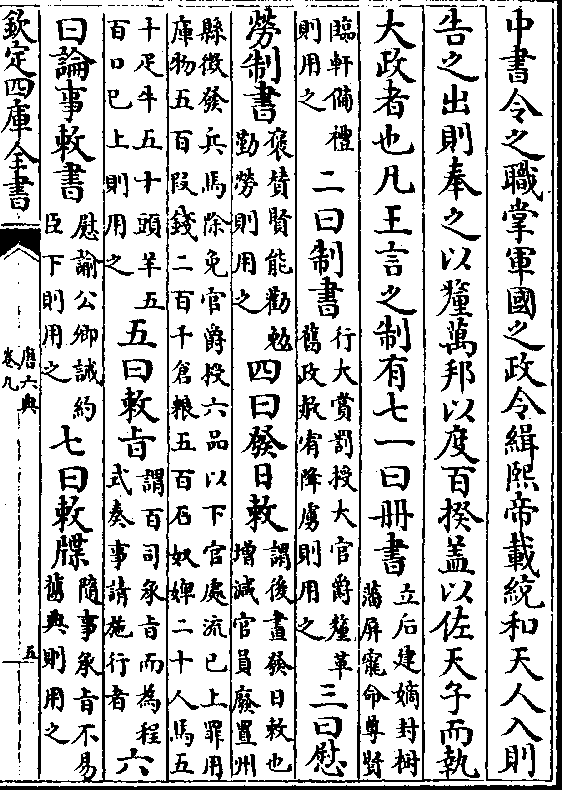 中書令之職掌軍國之政令緝熙帝載統和天人入則
告之出則奉之以釐萬邦以度百揆蓋以佐天子而執
大政者也凡王言之制有七一曰冊書立后建嫡封樹
藩屏寵命尊賢
臨軒備禮
則用之二曰制書行大賞罰授大官爵釐革
舊政赦宥降虜則用之三曰慰
勞制書褒賛賢能勸勉
勤勞則用之四曰發日敕謂後畫發日敕也
增減官員廢置州
縣徵發兵馬除免官爵授六品以下官處流已上罪用
庫物五百段錢二百千倉粮五百石奴婢二十人馬五
十疋牛五十頭羊五
百口已上則用之五曰敕旨謂百司承旨而為程
式奏事請施行者六
曰論事敕書慰諭公卿誡約
臣下則用之七曰敕牒隨事承旨不易
舊典則用之
欽定四庫全書
唐六典
卷九
五